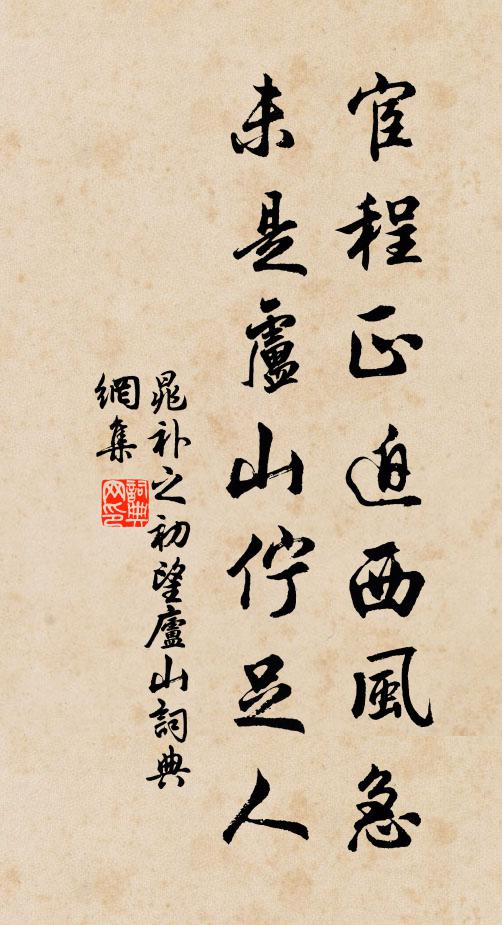 宦程正迫西風急
未是廬山佇足人
晁補之初望廬山詞典
網集
詞典
网印